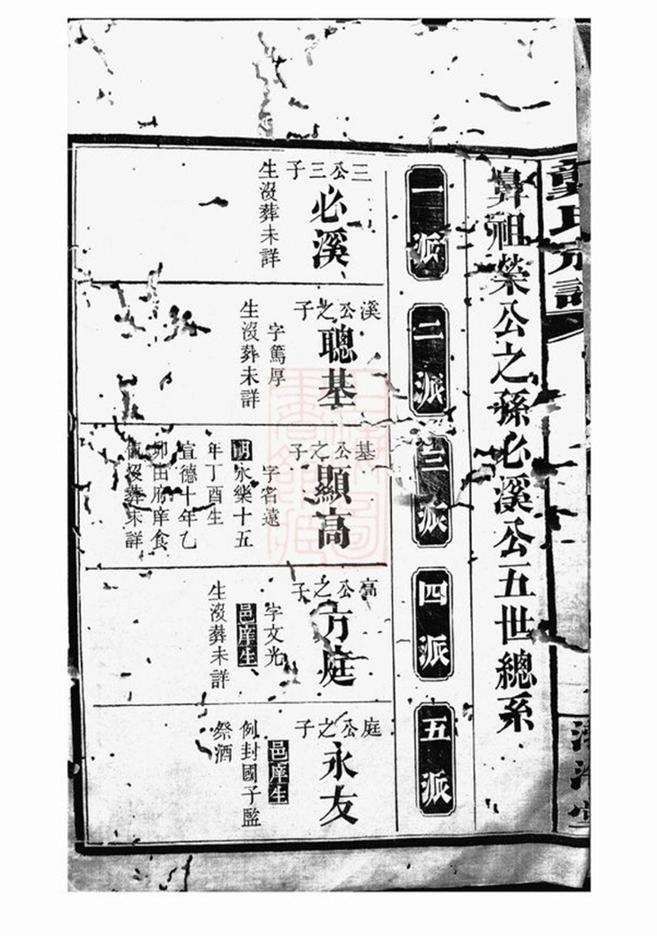 氏宗譜
鼻祖榮公之孫必溪公五世總系
一派
二派
三派
四派
五派
三公三子
必溪
生沒葬未詳
溪公之子
聰基
字篤厚
生沒葬未詳
基公之子
顯高
字名遠
明永樂十五
年丁酉生
宣德十年乙
卯由府庠食
沒葬未詳
高公之子
方庭
字文光
邑庠生
生沒葬未詳
庭公之子
永友
邑庠生
例封國子監
祭酒